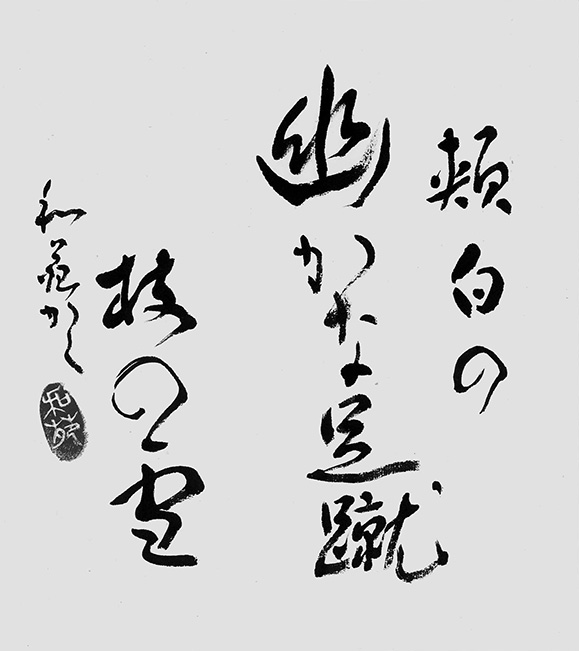 頬白の
幽かな足蹴
枝の雪
和苑かく
和苑